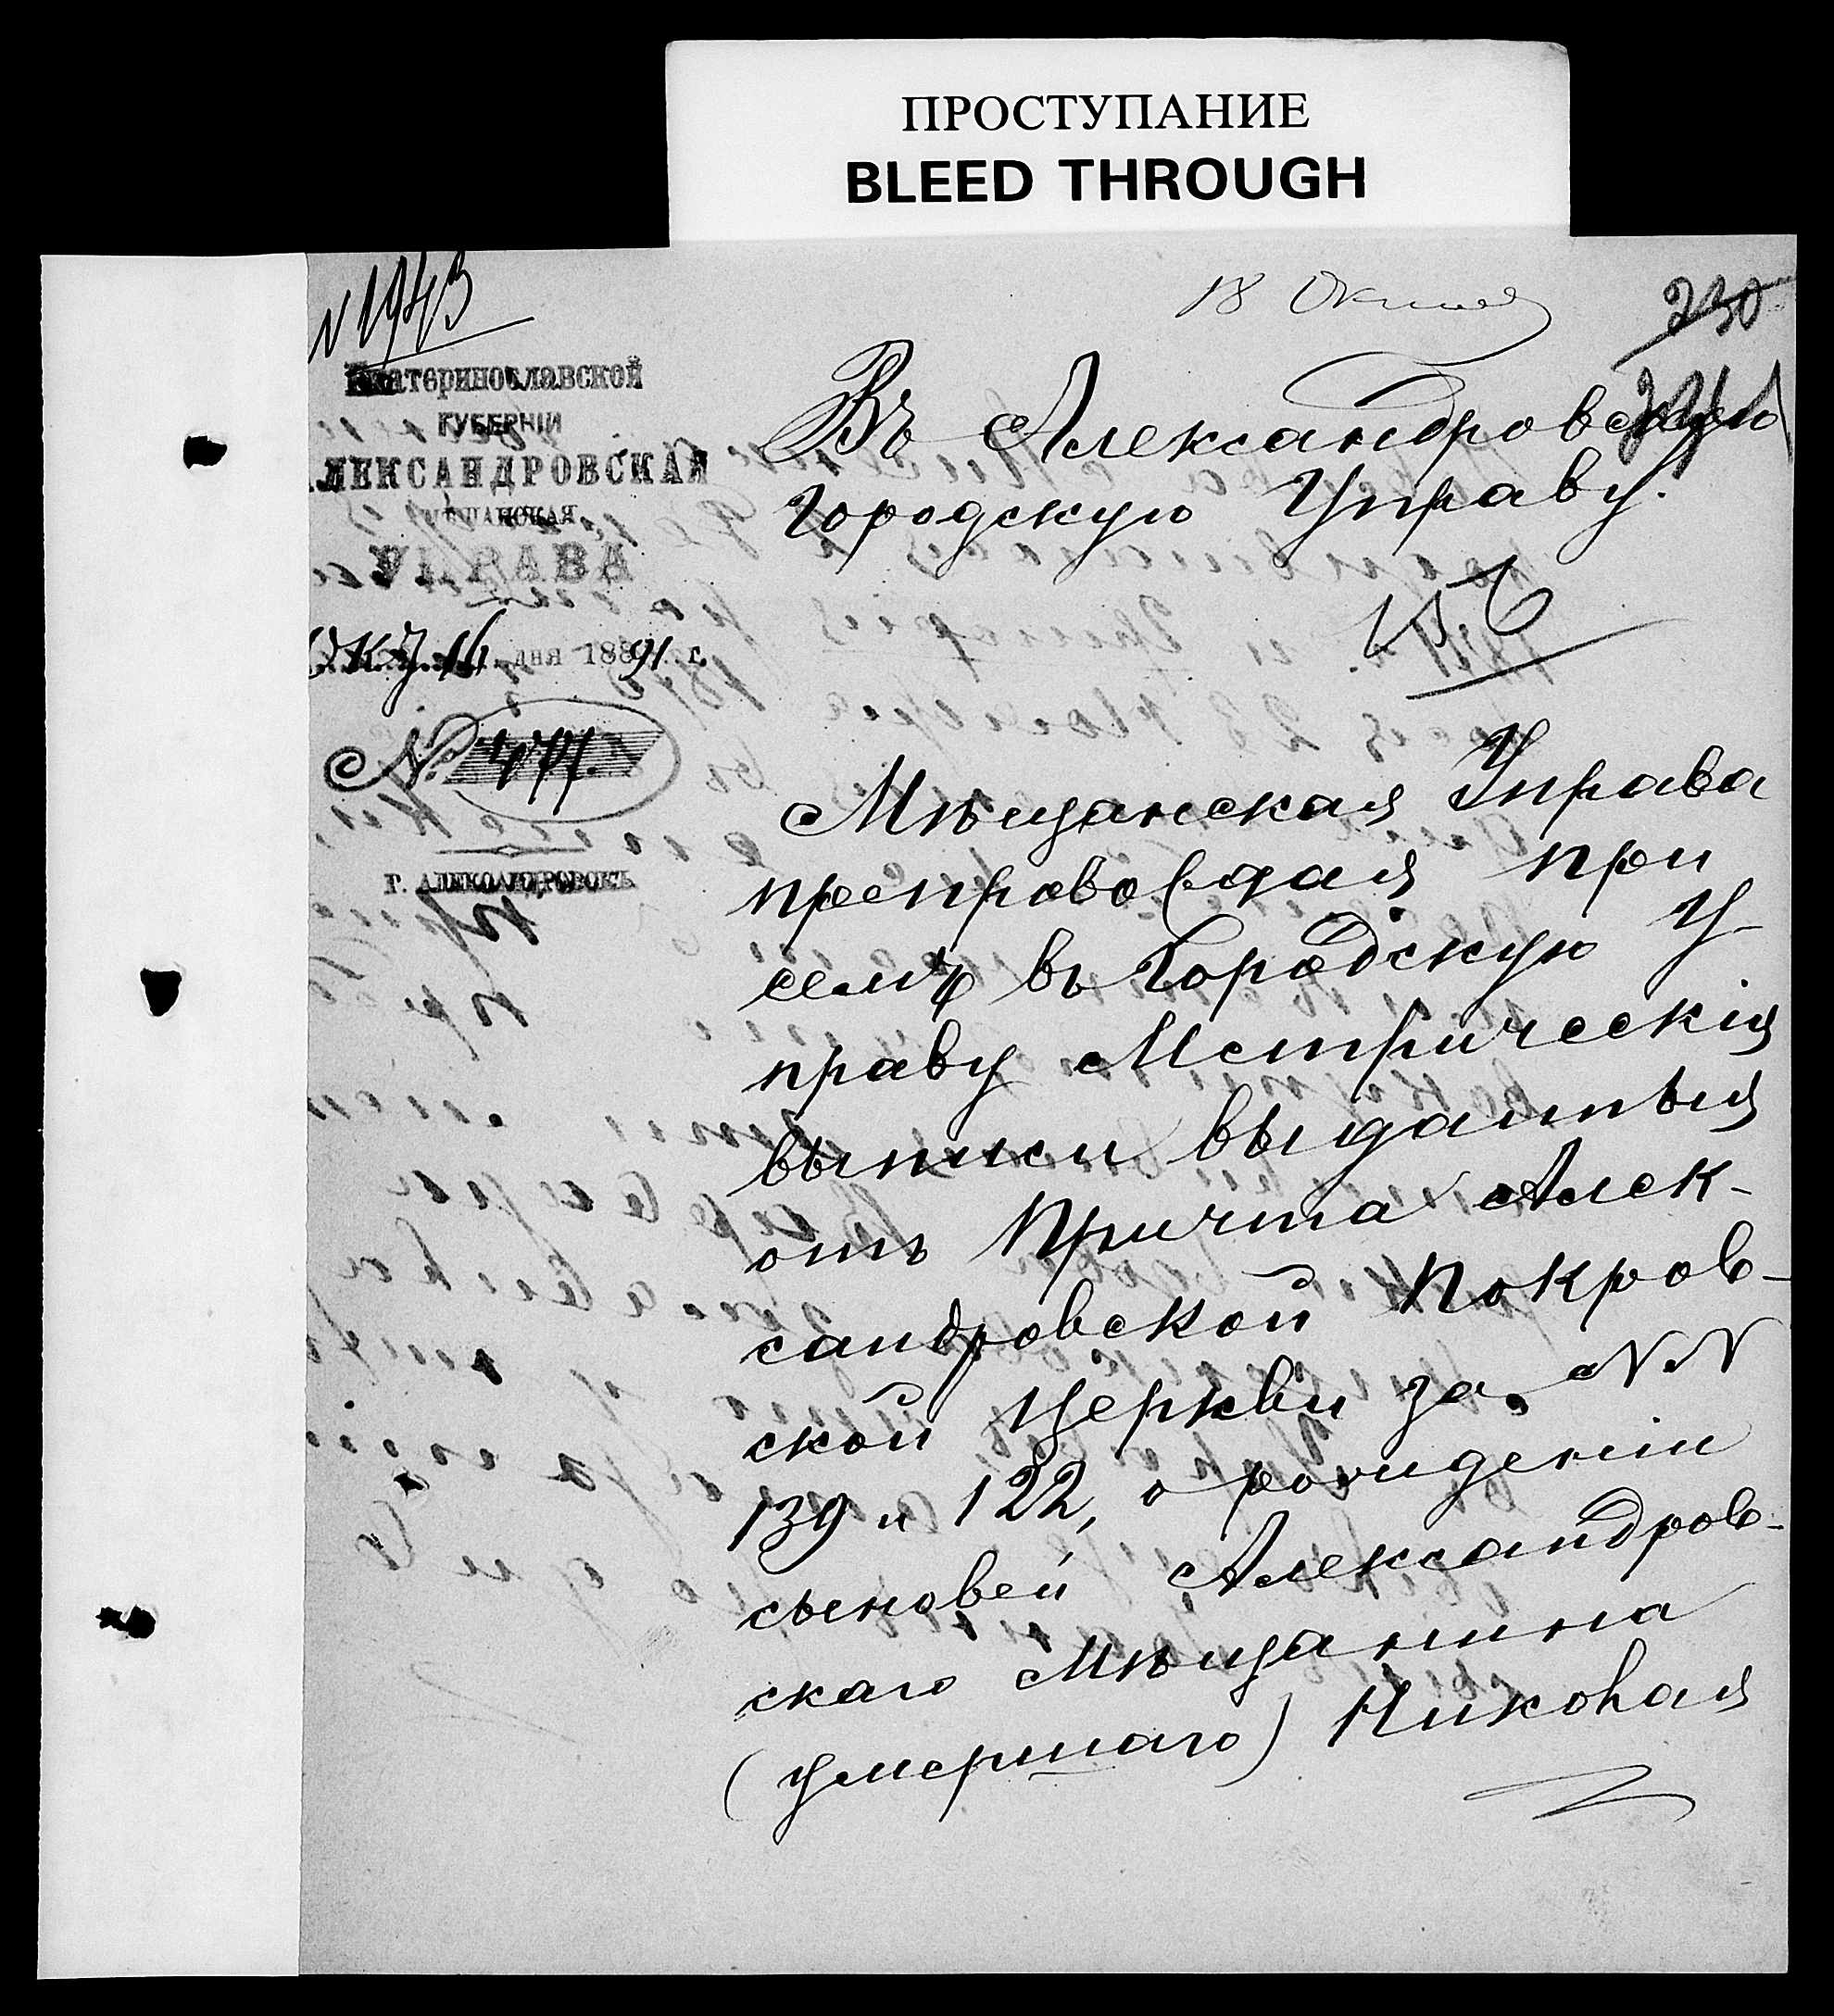 ПРОСТУПАНИЕ
BLEED THROUGH
N 1943
18 Октября
230
Екатеринославской
ГУБЕРНІИ
АЛЕКСАНДРОВСКАЯ
МѢЩАНСКАЯ
УПРАВА
Окт. 16 дня 1891 г.
№
г. АЛЕКСАНДРОВСКЪ
Въ Александровскую
Городскую Управу.
Мѣщанская Управа
препровождая при
семъ въ Городскую У-
праву Метрическія
выписи выданныя
отъ Причта Алек-
сандровской Покров-
ской Церкви за N N
139 и 122, о рожденіи
сыновей Александров-
скаго Мѣщанина
(умершаго) Николая